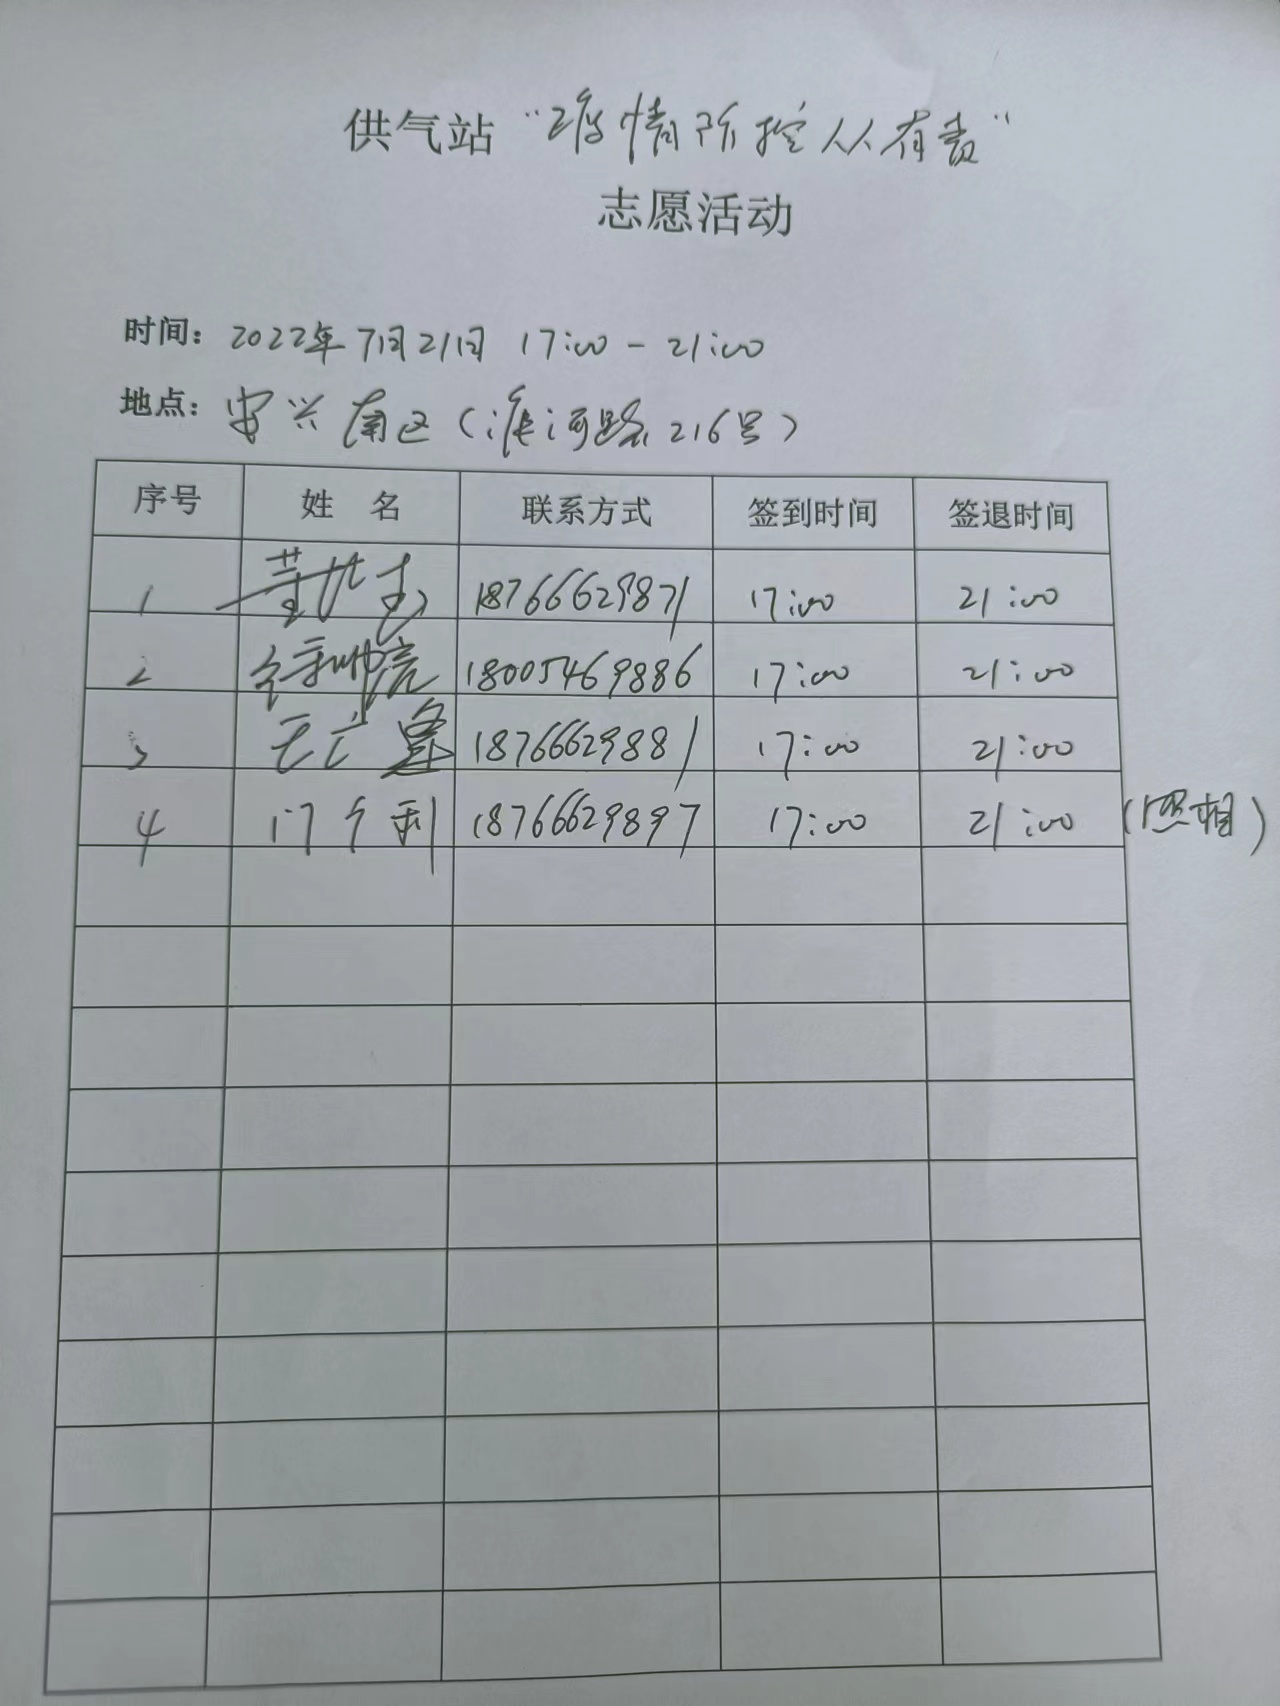 供气站“疫情防控人人有责”
志愿活动
时间：2022年7月21日 17:00-21:00
地点：安兴南区（淮河路216号）
序号 姓名 联系方式 签到时间 签退时间
1 18766629871 17:00 21:00
2 18005469886 17:00 21:00
3 18766629881 17:00 21:00
4 18766629897 17:00 21:00（照相）